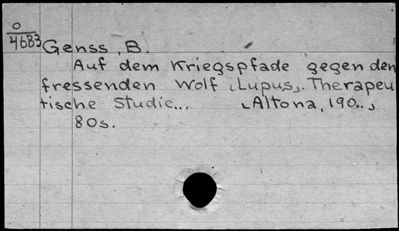 O
4683
Genss, B.
Auf dem Kriegspfade gegen den
fressenden Wolf (Lupus). Therapeu
tische Studie...  (Altona, 190..)
80s.